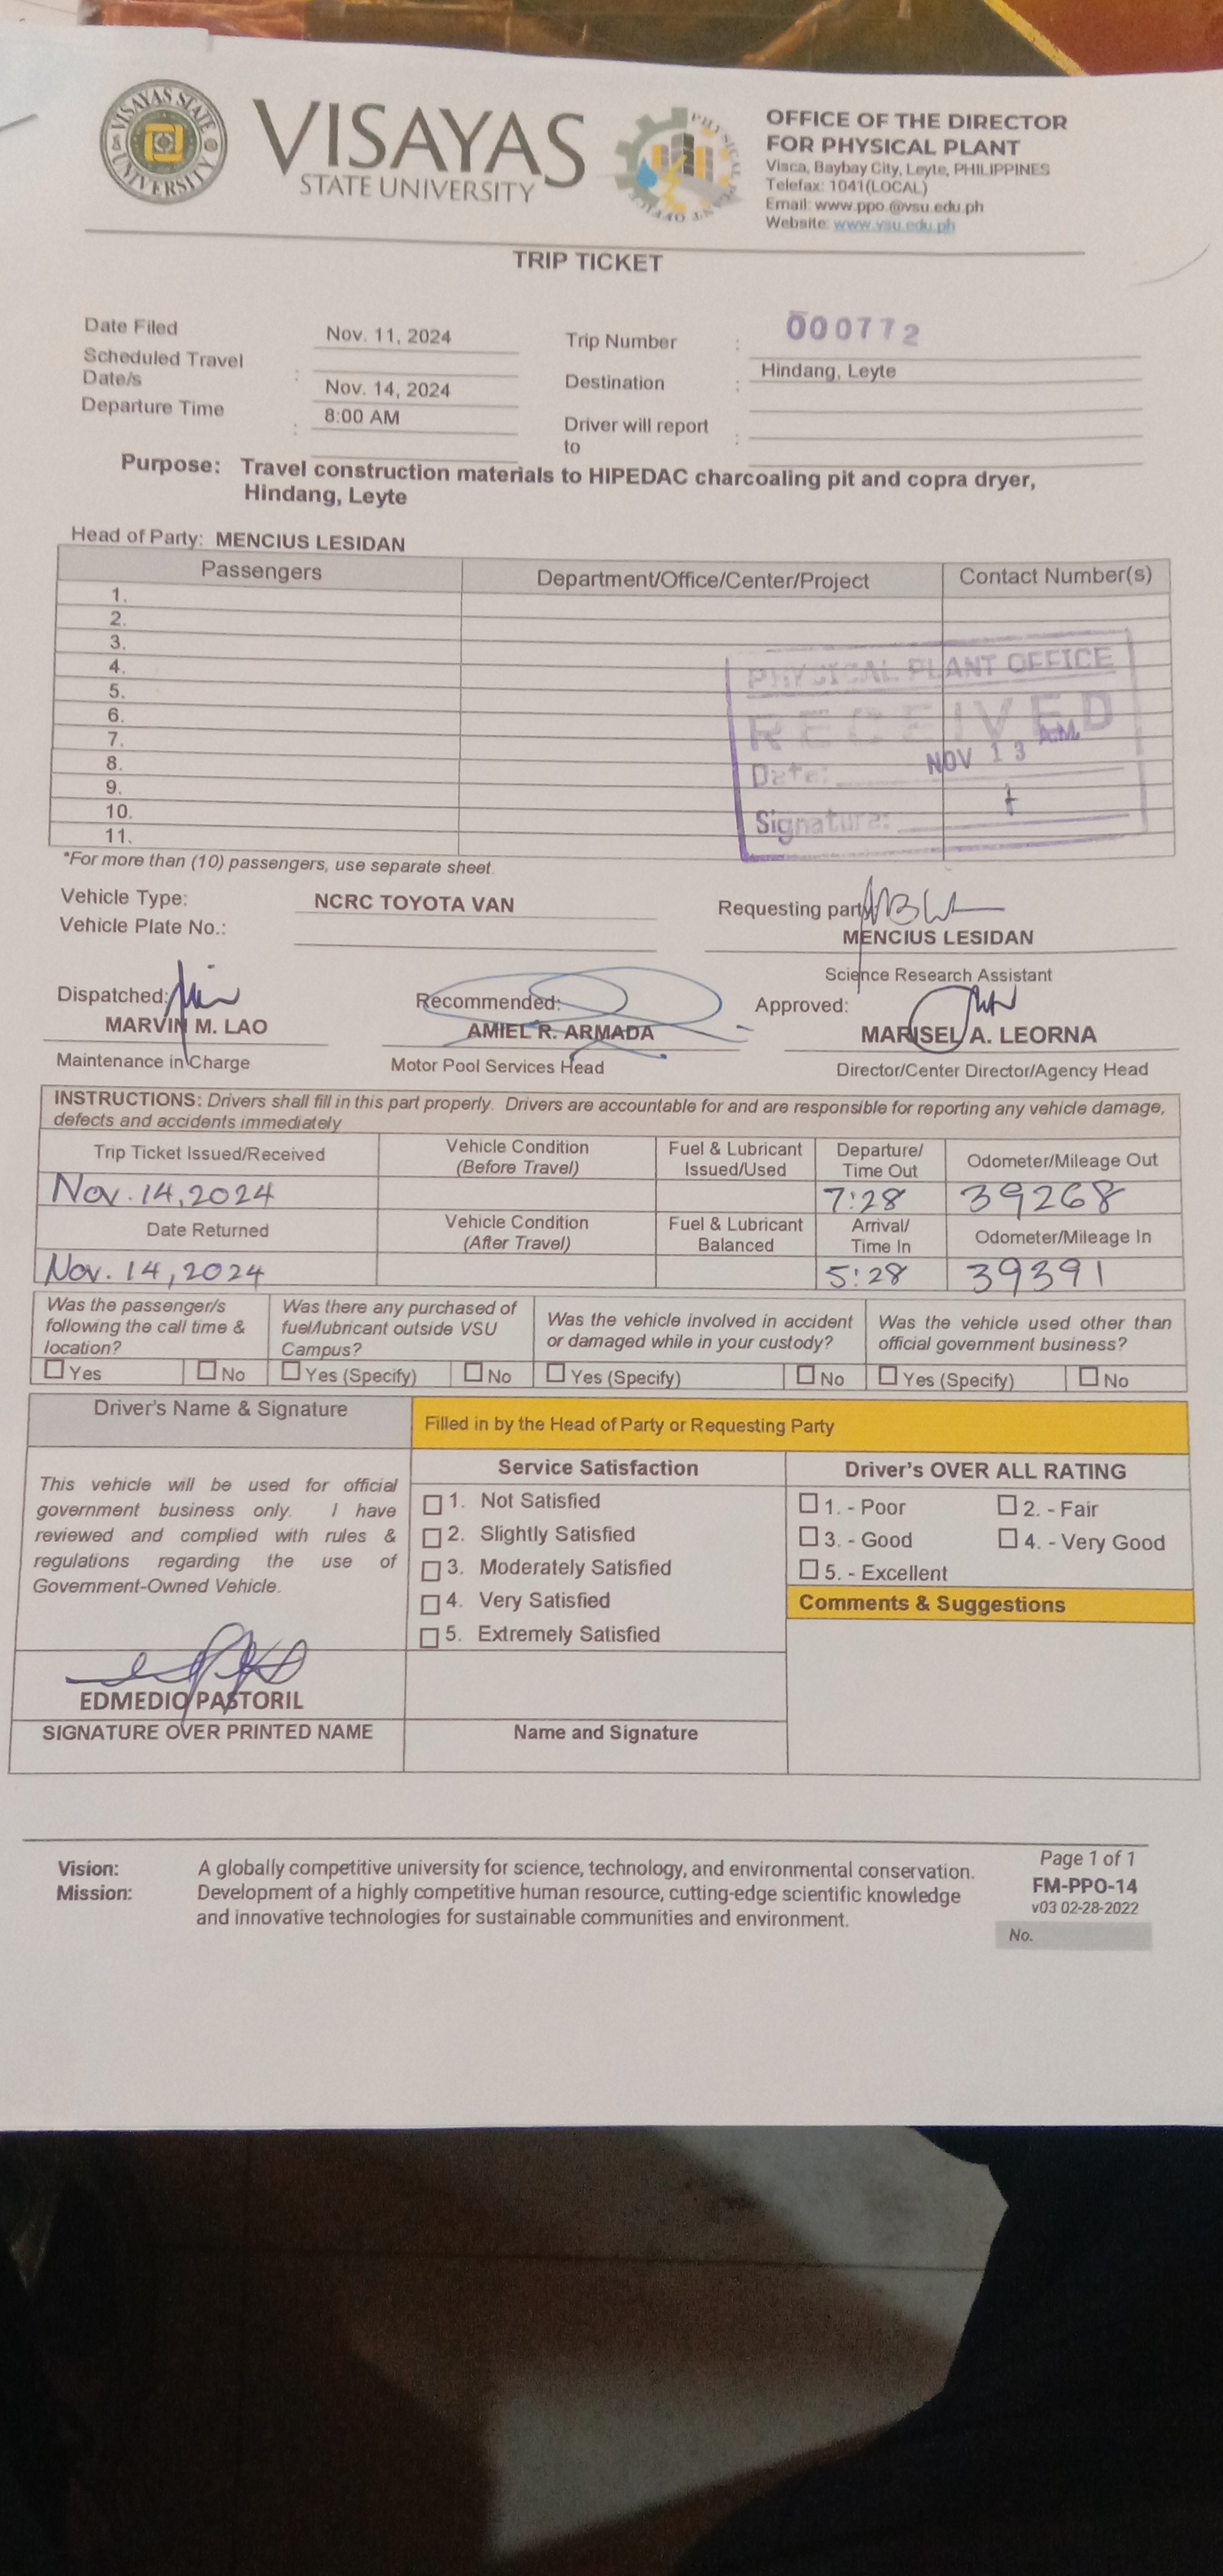 VISAYAS STATE UNIVERSITY
VISAYAS
STATE UNIVERSITY
OFFICE OF THE DIRECTOR
FOR PHYSICAL PLANT
Visca, Baybay City, Leyte, PHILIPPINES
Telefax: 1041(LOCAL)
Email: www.ppo.@vsu.edu.ph
Website: www.vsu.edu.ph
TRIP TICKET
Date Filed Nov. 11, 2024 Trip Number : 000772
Scheduled Travel Date/s : Nov. 14, 2024 Destination : Hindang, Leyte
Departure Time : 8:00 AM Driver will report to :
Purpose: Travel construction materials to HIPEDAC charcoaling pit and copra dryer,
Hindang, Leyte
Head of Party: MENCIUS LESIDAN
Passengers Department/Office/Center/Project Contact Number(s)
1.
2.
3.
4.
5.
6.
7.
8.
9.
10.
11.
PHYSICAL PLANT OFFICE
RECEIVED
A.M.
Date: NOV 13
Signature:
*For more than (10) passengers, use separate sheet.
Vehicle Type: NCRC TOYOTA VAN Requesting party:
Vehicle Plate No.: MENCIUS LESIDAN
Science Research Assistant
Dispatched: Recommended: Approved:
MARVIN M. LAO AMIEL R. ARMADA MARISEL A. LEORNA
Maintenance in Charge Motor Pool Services Head Director/Center Director/Agency Head
INSTRUCTIONS: Drivers shall fill in this part properly. Drivers are accountable for and are responsible for reporting any vehicle damage,
defects and accidents immediately
Trip Ticket Issued/Received Vehicle Condition (Before Travel) Fuel & Lubricant Issued/Used Departure/ Time Out Odometer/Mileage Out
Nov. 14, 2024 7:28 39268
Date Returned Vehicle Condition (After Travel) Fuel & Lubricant Balanced Arrival/ Time In Odometer/Mileage In
Nov. 14, 2024 5:28 39391
Was the passenger/s following the call time & location? Was there any purchased of fuel/lubricant outside VSU Campus? Was the vehicle involved in accident or damaged while in your custody? Was the vehicle used other than official government business?
Yes No Yes (Specify) No Yes (Specify) No Yes (Specify) No
Driver's Name & Signature Filled in by the Head of Party or Requesting Party
Service Satisfaction Driver's OVER ALL RATING
This vehicle will be used for official
government business only. I have
reviewed and complied with rules &
regulations regarding the use of
Government-Owned Vehicle.
1. Not Satisfied
2. Slightly Satisfied
3. Moderately Satisfied
4. Very Satisfied
5. Extremely Satisfied
1. - Poor 2. - Fair
3. - Good 4. - Very Good
5. - Excellent
Comments & Suggestions
EDMEDIO PASTORIL
SIGNATURE OVER PRINTED NAME Name and Signature
Vision: A globally competitive university for science, technology, and environmental conservation.
Mission: Development of a highly competitive human resource, cutting-edge scientific knowledge
and innovative technologies for sustainable communities and environment.
Page 1 of 1
FM-PPO-14
v03 02-28-2022
No.